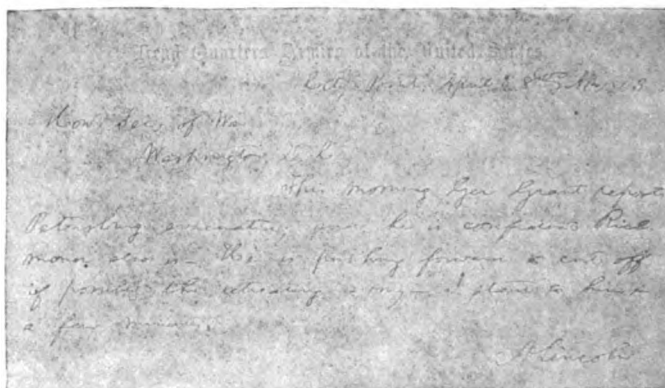 Head Quarters Armies of the United States
City Point, April
Hon. Sec. of War
Washington, D.C.
This morning Gen Grant reports
Petersburg evacuated; and he is confident Rich
mond also is— He is pushing forward to cut off
if possible, the retreating enemy— I start to him in
a few minutes.
A. Lincoln